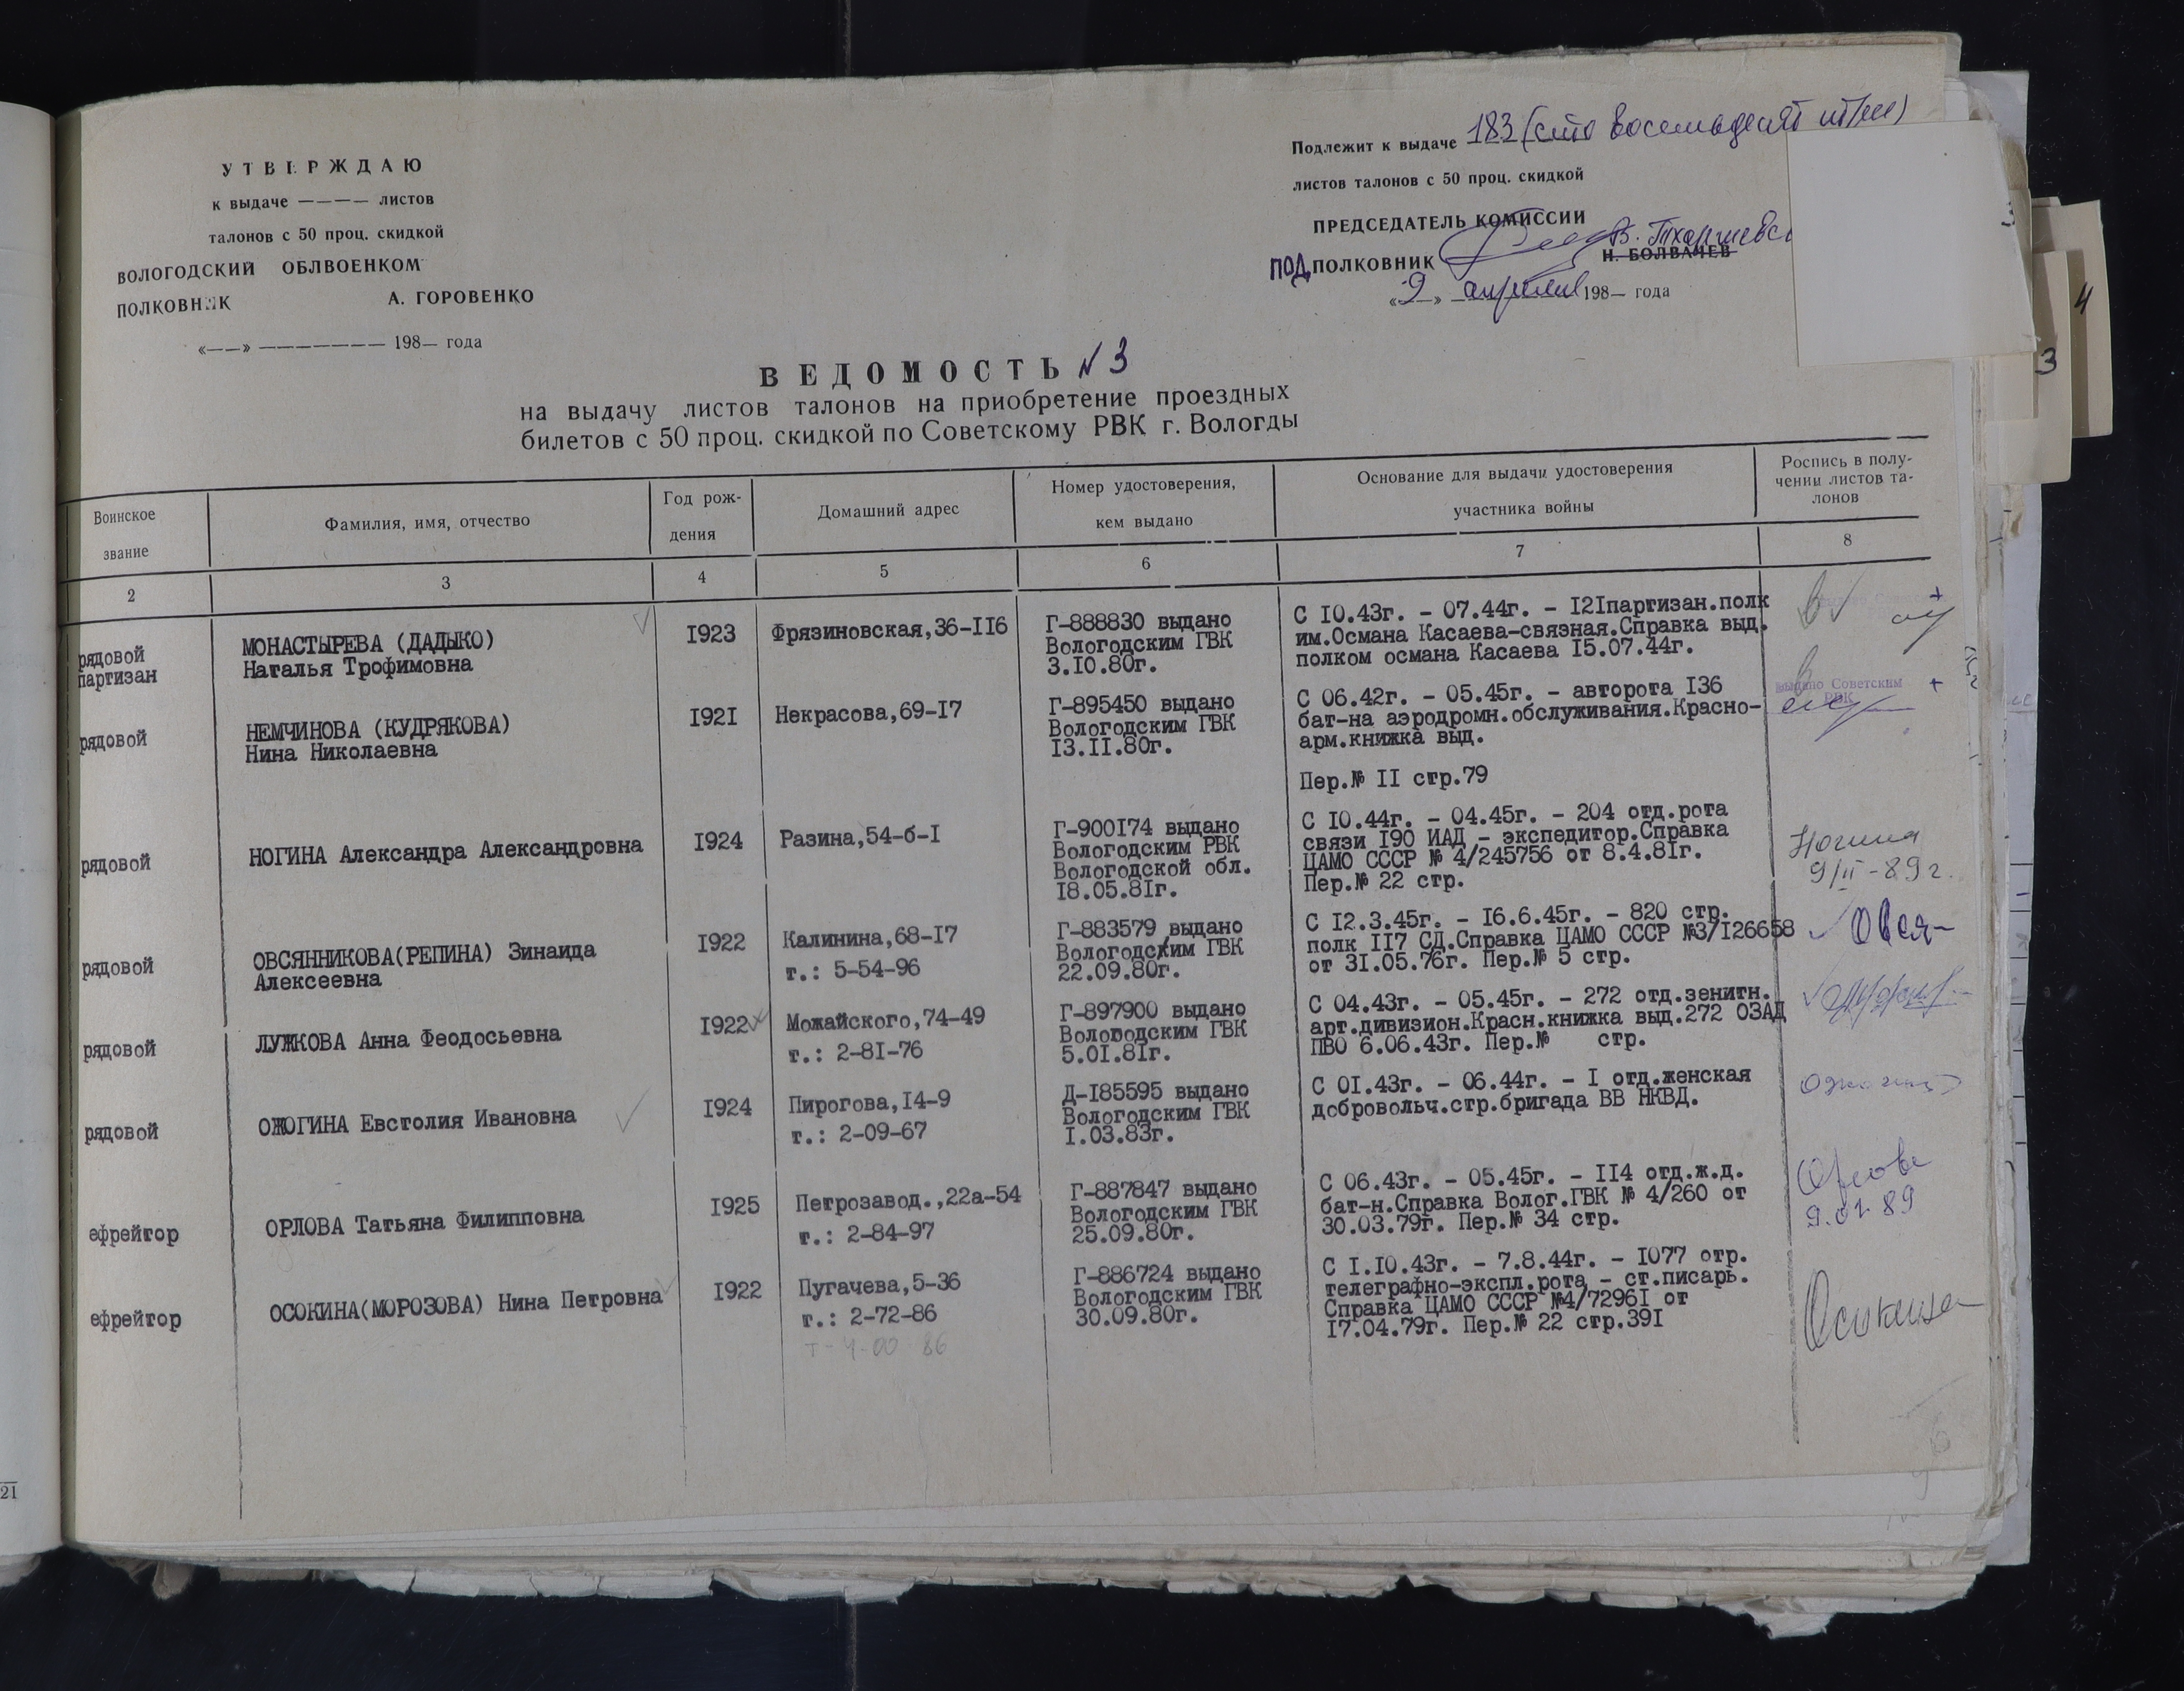 УТВЕРЖДАЮ
к выдаче ———— листов
талонов с 50 проц. скидкой
ВОЛОГОДСКИЙ ОБЛВОЕНКОМ
ПОЛКОВНИК А. ГОРОВЕНКО
«——» ——————— 198— года
Подлежит к выдаче 183 (сто восемьдесят три)
листов талонов с 50 проц. скидкой
ПРЕДСЕДАТЕЛЬ КОМИССИИ
ПОДПОЛКОВНИК Н. БОЛВАЧЕВ
«9» апреля 198— года
ВЕДОМОСТЬ № 3
на выдачу листов талонов на приобретение проездных
билетов с 50 проц. скидкой по Советскому РВК г. Вологды
Воинское звание
Фамилия, имя, отчество
Год рож-
дения
Домашний адрес
Номер удостоверения,
кем выдано
Основание для выдачи удостоверения
участника войны
Роспись в полу-
чении листов та-
лонов
2 3 4 5 6 7 8
рядовой
партизан
МОНАСТЫРЕВА (ДАДЫКО)
Наталья Трофимовна
1923
Фрязиновская,36-116
Г-888830 выдано
Вологодским ГВК
3.10.80г.
С 10.43г. - 07.44г. - 121партизан.полк
им.Османа Касаева-связная.Справка выд.
полком османа Касаева 15.07.44г.
рядовой
НЕМЧИНОВА (КУДРЯКОВА)
Нина Николаевна
1921
Некрасова,69-17
Г-895450 выдано
Вологодским ГВК
13.11.80г.
С 06.42г. - 05.45г. - авторота 136
бат-на аэродромн.обслуживания.Красно-
арм.книжка выд.
Пер.№ 11 стр.79
выдано Советским
РВК
рядовой
НОГИНА Александра Александровна
1924
Разина,54-б-1
Г-900174 выдано
Вологодским РВК
Вологодской обл.
18.05.81г.
С 10.44г. - 04.45г. - 204 отд.рота
связи 190 ИАД - экспедитор.Справка
ЦАМО СССР № 4/245756 от 8.4.81г.
Пер.№ 22 стр.
Ногина
9/II-89г.
рядовой
ОВСЯННИКОВА(РЕПИНА) Зинаида
Алексеевна
1922
Калинина,68-17
т.: 5-54-96
Г-883579 выдано
Вологодским ГВК
22.09.80г.
С 12.3.45г. - 16.6.45г. - 820 стр.
полк 117 СД.Справка ЦАМО СССР №3/126658
от 31.05.76г. Пер.№ 5 стр.
Овся-
рядовой
ЛУЖКОВА Анна Феодосьевна
1922
Можайского,74-49
т.: 2-81-76
Г-897900 выдано
Вологодским ГВК
5.01.81г.
С 04.43г. - 05.45г. - 272 отд.зенитн.
арт.дивизион.Красн.книжка выд.272 ОЗАД
ПВО 6.06.43г. Пер.№ стр.
рядовой
ОЖОГИНА Евстолия Ивановна
1924
Пирогова,14-9
т.: 2-09-67
Д-185595 выдано
Вологодским ГВК
1.03.83г.
С 01.43г. - 06.44г. - 1 отд.женская
добровольч.стр.бригада ВВ НКВД.
ефрейтор
ОРЛОВА Татьяна Филипповна
1925
Петрозавод.,22а-54
т.: 2-84-97
Г-887847 выдано
Вологодским ГВК
25.09.80г.
С 06.43г. - 05.45г. - 114 отд.ж.д.
бат-н.Справка Волог.ГВК № 4/260 от
30.03.79г. Пер.№ 34 стр.
ефрейтор
ОСОКИНА(МОРОЗОВА) Нина Петровна
1922
Пугачева,5-36
т.: 2-72-86
т-4-00 86
Г-886724 выдано
Вологодским ГВК
30.09.80г.
С 1.10.43г. - 7.8.44г. - 1077 отр.
телеграфно-экспл.рота - ст.писарь.
Справка ЦАМО СССР №4/72961 от
17.04.79г. Пер.№ 22 стр.391
Осокина
21
4
3